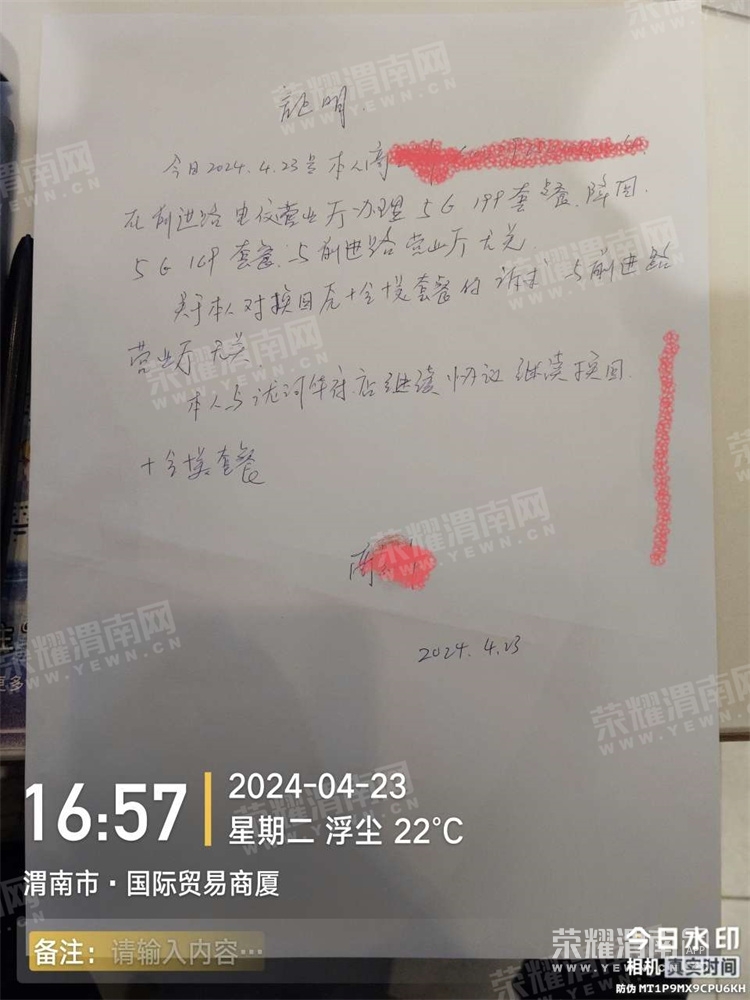 荣耀渭南网
WWW.YEWN.CN
证明
今日2024.4.23号本人高
在前进路电信营业厅办理5G 199套餐.降回
5G 169套餐.与前进路营业厅无关.
关于本人对换回充十全 套餐的诉求 与前进路
营业厅无关.
本人与 河华府店继续协议继续换回
十全 套餐
高
2024.4.23
16:57
2024-04-23
星期二 浮尘 22℃
渭南市·国际贸易商厦
备注: 请输入内容…
今日水印
相机 真实时间
防伪 MT1P9MX9CPU6KH